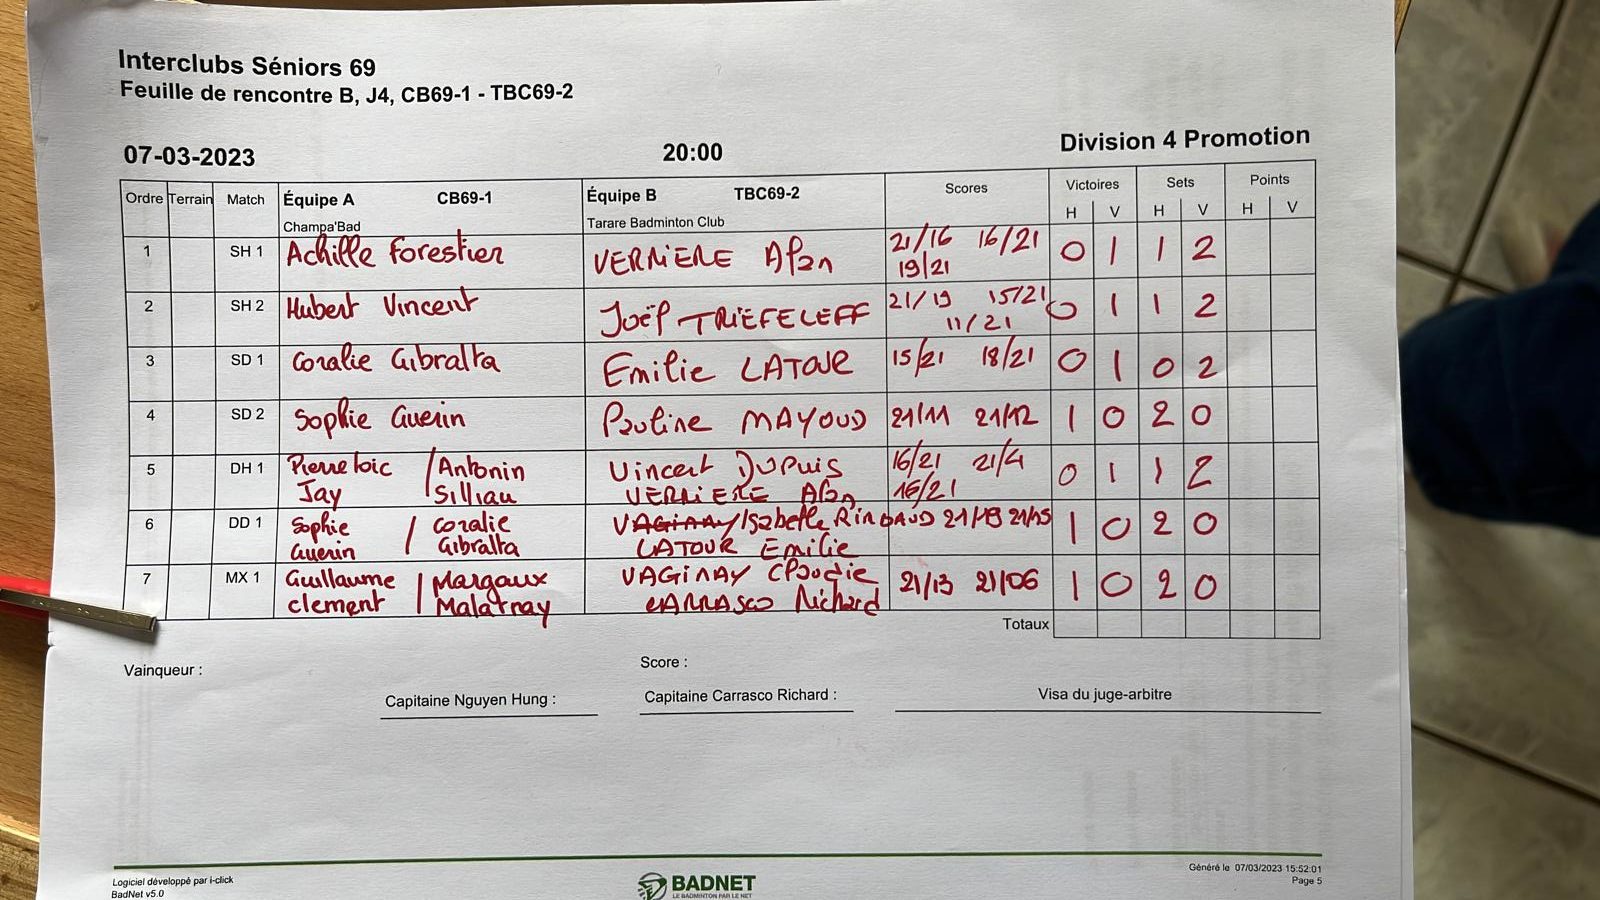 Interclubs Séniors 69
Feuille de rencontre B, J4, CB69-1 - TBC69-2
07-03-2023 20:00 Division 4 Promotion
Ordre Terrain Match Équipe A CB69-1 Équipe B TBC69-2 Scores Victoires Sets Points
Champa'Bad Tarare Badminton Club H V H V H V
1 SH 1 Achille Forestier VERRIERE Alan 21/16 16/21 0 1 1 2
19/21
2 SH 2 Hubert Vincent Joël TRIEFELEFF 21/19 15/21 0 1 1 2
11/21
3 SD 1 Coralie Gibralta Emilie LATOUR 15/21 18/21 0 1 0 2
4 SD 2 Sophie Guerin Pauline MAYOUD 21/11 21/12 1 0 2 0
5 DH 1 Pierre loic / Antonin Vincent DUPUIS 16/21 21/4 0 1 1 2
Jay Silliau VERRIERE Alan 16/21
6 DD 1 Sophie / Coralie VAGINAY/Isabelle RIMBAUD 21/19 21/15 1 0 2 0
Guerin Gibralta LATOUR Emilie
7 MX 1 Guillaume / Margaux VAGINAY Claudie 21/13 21/06 1 0 2 0
Clement Malatray CARRASCO Richard
Totaux
Vainqueur : Score :
Capitaine Nguyen Hung : Capitaine Carrasco Richard : Visa du juge-arbitre
Logiciel développé par i-click
BadNet v5.0
BADNET
LE BADMINTON PAR LE NET
Généré le 07/03/2023 15:52:01
Page 5